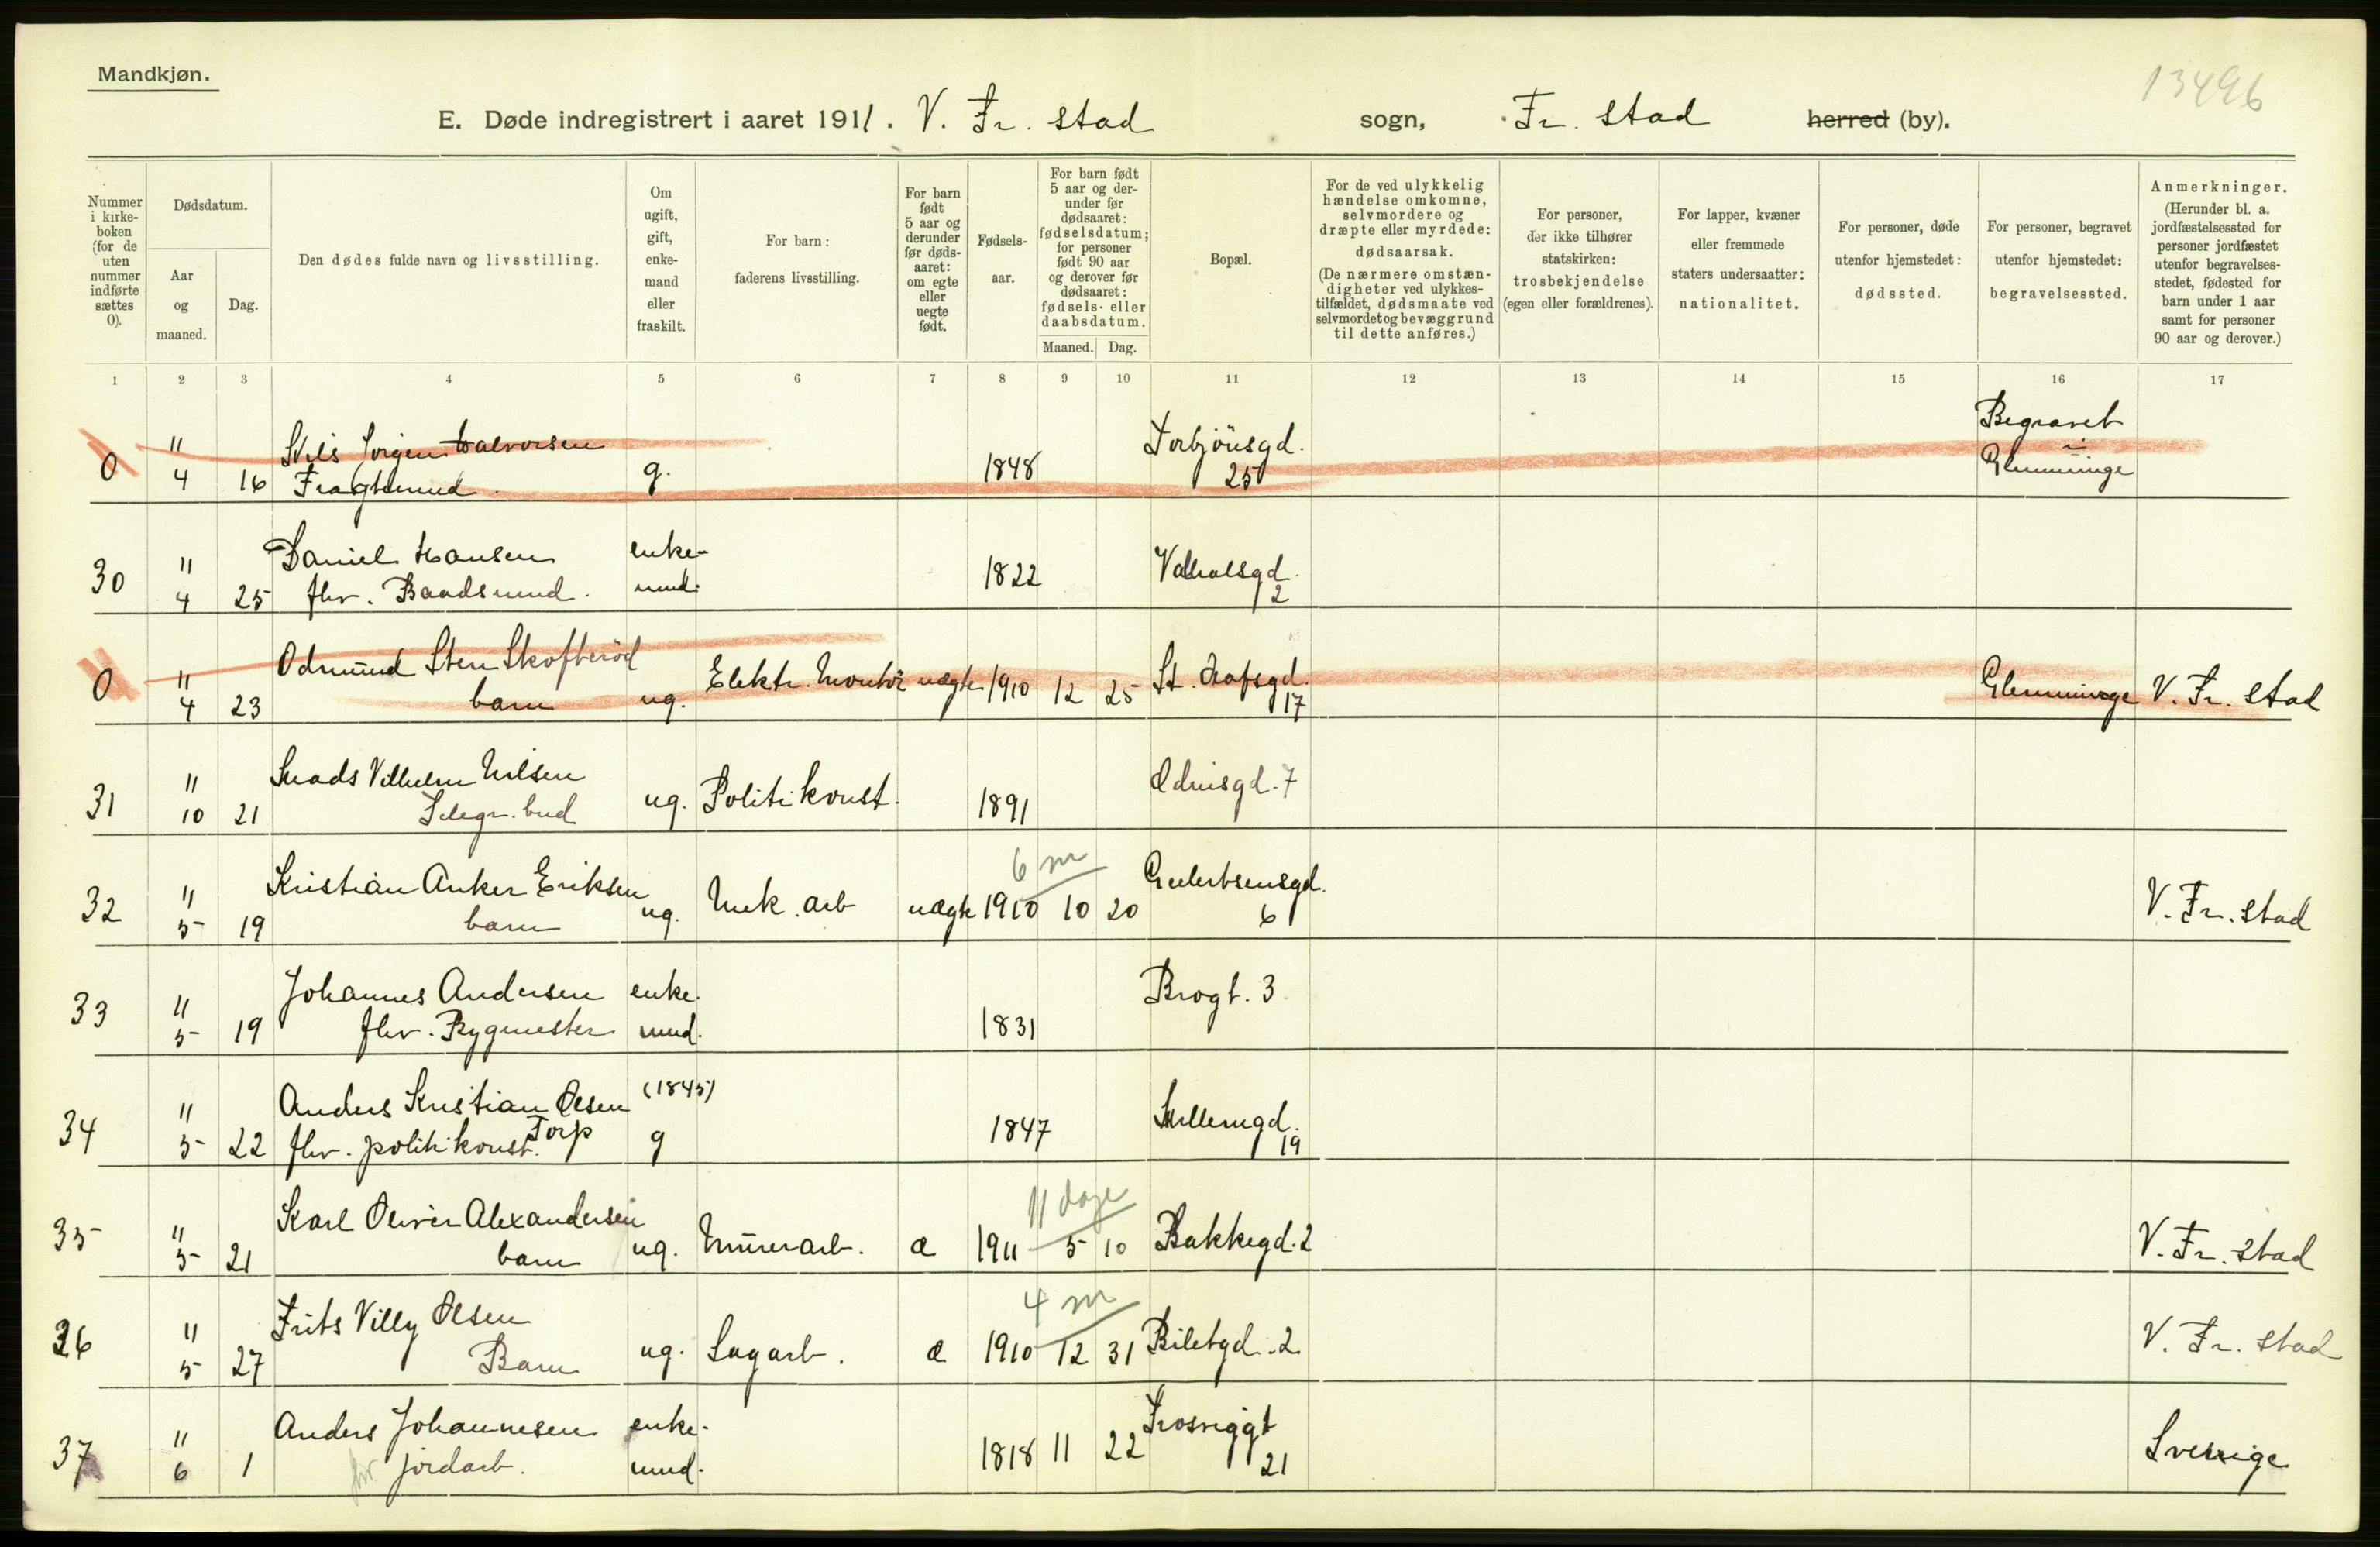 Mandkjøn.
13496
E. Døde indregistrert i aaret 1911. V. Fr. stad sogn, Fr. stad herred (by).
Nummer i kirke-boken (for de uten nummer indførte sættes 0).
Dødsdatum.
Aar og maaned.
Dag.
Den dødes fulde navn og livsstilling.
Om ugift, gift, enke-mand eller fraskilt.
For barn: faderens livsstilling.
For barn født 5 aar og derunder før døds-aaret: om egte eller uegte født.
Fødsels-aar.
For barn født 5 aar og der-under før dødsaaret: fødselsdatum; for personer født 90 aar og derover før dødsaaret: fødsels- eller daabsdatum.
Maaned. Dag.
Bopæl.
For de ved ulykkelig hændelse omkomne, selvmordere og dræpte eller myrdede: dødsaarsak. (De nærmere omstæn-digheter ved ulykkes-tilfældet, dødsmaate ved selvmordet og bevæggrund til dette anføres.)
For personer, der ikke tilhører statskirken: trosbekjendelse (egen eller forældrenes).
For lapper, kvæner eller fremmede staters undersaatter: nationalitet.
For personer, døde utenfor hjemstedet: dødssted.
For personer, begravet utenfor hjemstedet: begravelsessted.
Anmerkninger. (Herunder bl. a. jordfæstelsessted for personer jordfæstet utenfor begravelses-stedet, fødested for barn under 1 aar samt for personer 90 aar og derover.)
1 2 3 4 5 6 7 8 9 10 11 12 13 14 15 16 17
0 11 4 16 Nils Jørgen Halvorsen g. 1848 Torbjönsgd. 25 Begravet i Glemminge
Fragtemd.
30 11 4 25 Daniel Hansen enke-md. 1822 Valhalsgd. 2
fhv. Baadsmnd.
0 11 4 23 Odmund Sten Skofteröd ug. Elektr. Montör uægte 1910 12 25 St. Olafsgd. 17 Glemminge V. Fr. stad
barn
31 11 10 21 Mads Vilhelm Nilsen ug. Politikonst. 1891 Odinsgd. 7
Telegr. bud
32 11 5 19 Kristian Anker Eriksen ug. Mek. arb uægte 1910 10 20 6 m 6 V. Fr. stad
barn
33 11 5 19 Johannes Andersen enke-md. 1831 Brogt. 3
fhv. Bygmester
34 11 5 22 Anders Kristian Olsen Torp (1845) g 1847 19
fhv. politikonst.
35 11 5 21 Karl Oliver Alexandersen ug. Murerarb. æ 1911 5 10 11 dage Bakkegd. 2 V. Fr. stad
barn
36 11 5 27 Frits Villy Olsen ug. Sagarb. æ 1910 12 31 4 m Biletgd. 2 V. Fr. stad
Barn
37 11 6 1 Anders Johannesen enke-md. 1818 11 22 Trosviggt 21 Sverige
fhv jordarb.